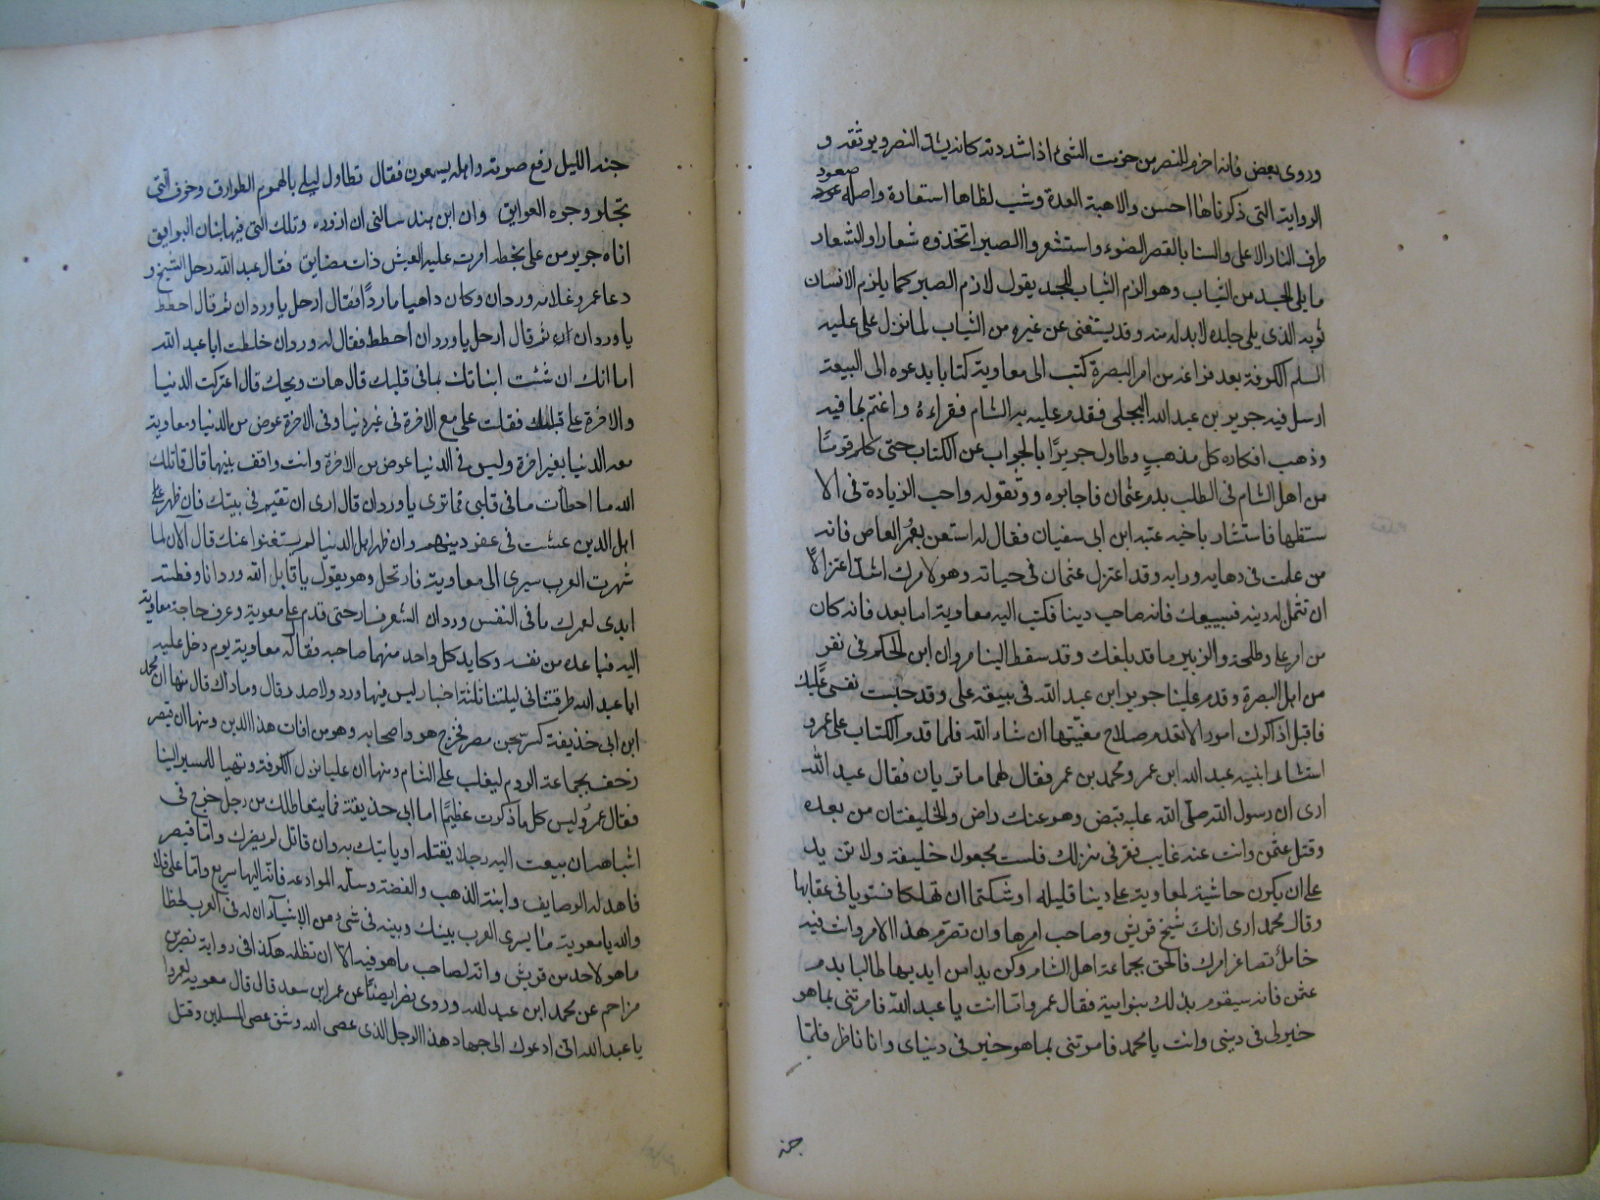 وروى بعض فانه احزم للنصر من حزمت الشئ اذا شددته كانه يشد النصر ويوثقه و
الرواية التى ذكرناها احسن والاهبة العدة وشب لظاها استعارة واصله صعود
طرف النار الاعلى والسنا بالقصر الضوء واستشعروا الصبر اتخذوه شعارا والشعار
ما يلى الجسد من الثياب وهو الزم الثياب للجسد يقول لازم الصبر كما يلزم الانسان
ثوبه الذى يلى جلده لابد له منه وقد يستغنى عن غيره من الثياب لما نزل على عليه
السلم الكوفة بعد فراغه من امر البصرة كتب الى معاوية كتابا يدعوه الى البيعة
ارسل فيه جرير بن عبد الله البجلى فقدم عليه به الشام فقراءه واغتم بما فيه
وذهب افكاره كل مذهب وطاول جريرًا بالجواب عن الكتاب حتى كلم قومًا
من اهل الشام فى الطلب بدم عثمان فاجابوه ووثقوله واحب الزيادة فى الا
ستظهار فاستشار باخيه عتبه ابن ابى سفيان فقال له استعن بعمر العاص فانه
من علمت فى دهايه ورايه وقد اعتزل عثمان فى حياته وهو لامرك اشد اعتزالًا
ان تثمن له دينه فسيبيعك فانه صاحب دينا فكتب اليه معاوية اما بعد فانه كان
من امر على وطلحة والزبير ما قد بلغك وقد سقط الينا مروان ابن الحكم فى نفر
من اهل البصرة وقدم علينا جرير ابن عبد الله فى بيعة على وقد حبست نفسى عليك
فاقبل اذاكرك امورا لا تعدم صلاح مغبتها ان شاء الله فلما قدم الكتاب على عمرو
استشار ابنيه عبد الله ابن عمرو ومحمد بن عمر فقال لهما ما تريان فقال عبد الله
ارى ان رسول الله صلى الله عليه قبض وهو عنك راض والخليفتان من بعده
وقتل عثمن وانت عنه غايب فقر فى منزلك فلست مجعولا خليفة ولا تزيد
على ان يكون حاشية لمعاوية على دينا قليلة اوشكتما ان تهلكا فتستويا فى عقابها
وقال محمد ارى انك شيخ قريش وصاحب امرها وان تصرم هذا الامر وانت فيه
خامل تصاغر امرك فالحق بجماعة اهل الشام وكن يدا من ايديها طالبا بدم
عثمن فانه سيقوم بذلك بنو امية فقال عمرو اما انت يا عبد الله فامرتنى بما هو
خير لى فى دينى وانت يا محمد فامرتنى بما هو خير فى دنياى وانا ناظر فلما
جنه
جنه الليل رفع صوته واهله يسمعون فقال تطاول ليلى بالهموم الطوارق وخوف التى
تجلو وجوه العوايق وان ابن هند سالنى ان ازوره وتلك التى فيها بنات البوايق
اتاه جرير من على بخطه امرت عليه العيش ذات مضايق فقال عبد الله رحل الشيخ و
دعا عمرو غلامه وردان وكان داهيا ماردًا فقال ارحل يا وردان ثم قال احطط
يا وردان ثم قال ارحل يا وردان احطط فقال له وردان خلطت ابا عبد الله
اما انك ان شئت انباتك بما فى قلبك قال هات ويحك قال اعتركت الدنيا
والاخرة على قبلك فقلت على مع الاخرة فى غير دنيا وفى الاخرة عوض من الدنيا ومعاوية
معه الدنيا بغير اخرة وليس فى الدنيا عوض من الاخرة وانت واقف بينهما قال قاتلك
الله ما احطات ما فى قلبى فما ترى يا وردان قال ارى ان تقيم فى بيتك فان ظهر
اهل الدين عشت فى عفو دينهم وان ظهر اهل الدنيا لم يستغنوا عنك قال آلان لما
شهرت العرب سيرى الى معاوية فارتحل وهو يقول يا قاتل الله وردانا وفطنته
ابدى لعمرك ما فى النفس وردان الشعر فسار حتى قدم على معوية وعرف حاجة معاوية
اليه فباعده من نفسه وكايد كل واحد منهما صاحبه فقال له معاوية يوم دخل عليه
ابا عبد الله طرقتنا فى ليلتنا ثلثة اخبار ليس فيها ورد ولا صدر قال وما ذاك قال منها ان محمد
ابن ابى حذيفة كسر سجن مصر فخرج هو واصحابه وهو من افات هذا الدين ومنها ان قيصر
زحف بجماعة الروم ليغلب على الشام ومنها ان عليا نزل الكوفة وتهيا للمسير الينا
فقال عمرو ليس كل ما ذكرت عظيمًا اما ابى حذيفة فما يتعاظمك من رجل خرج فى
اشباهه ان تبعث اليه رجلا يقتله او ياتيك به وان قاتل لم يضرك واما قيصر
فاهد له الوصايف وابنة الذهب والفضة وسله الموادعة فانه اليها سريع واما على فلا
والله يا معوية ما يسوى العرب بينك وبينه فى شئ من الاشيآء ان له فى العرب لحظا
ما هو لاحد من قريش وانه لصاحب ما هو فيه الا ان تظلمه هكذا فى رواية نصر بن
مزاحم عن محمد ابن عبيد الله وروى نصر ايضًا عن عمر ابن سعد قال قال معوية لعمرو
يا عبد الله انى ادعوك الى جهاد هذا الرجل الذى عصى الله وشق عصى المسلمين وقتل